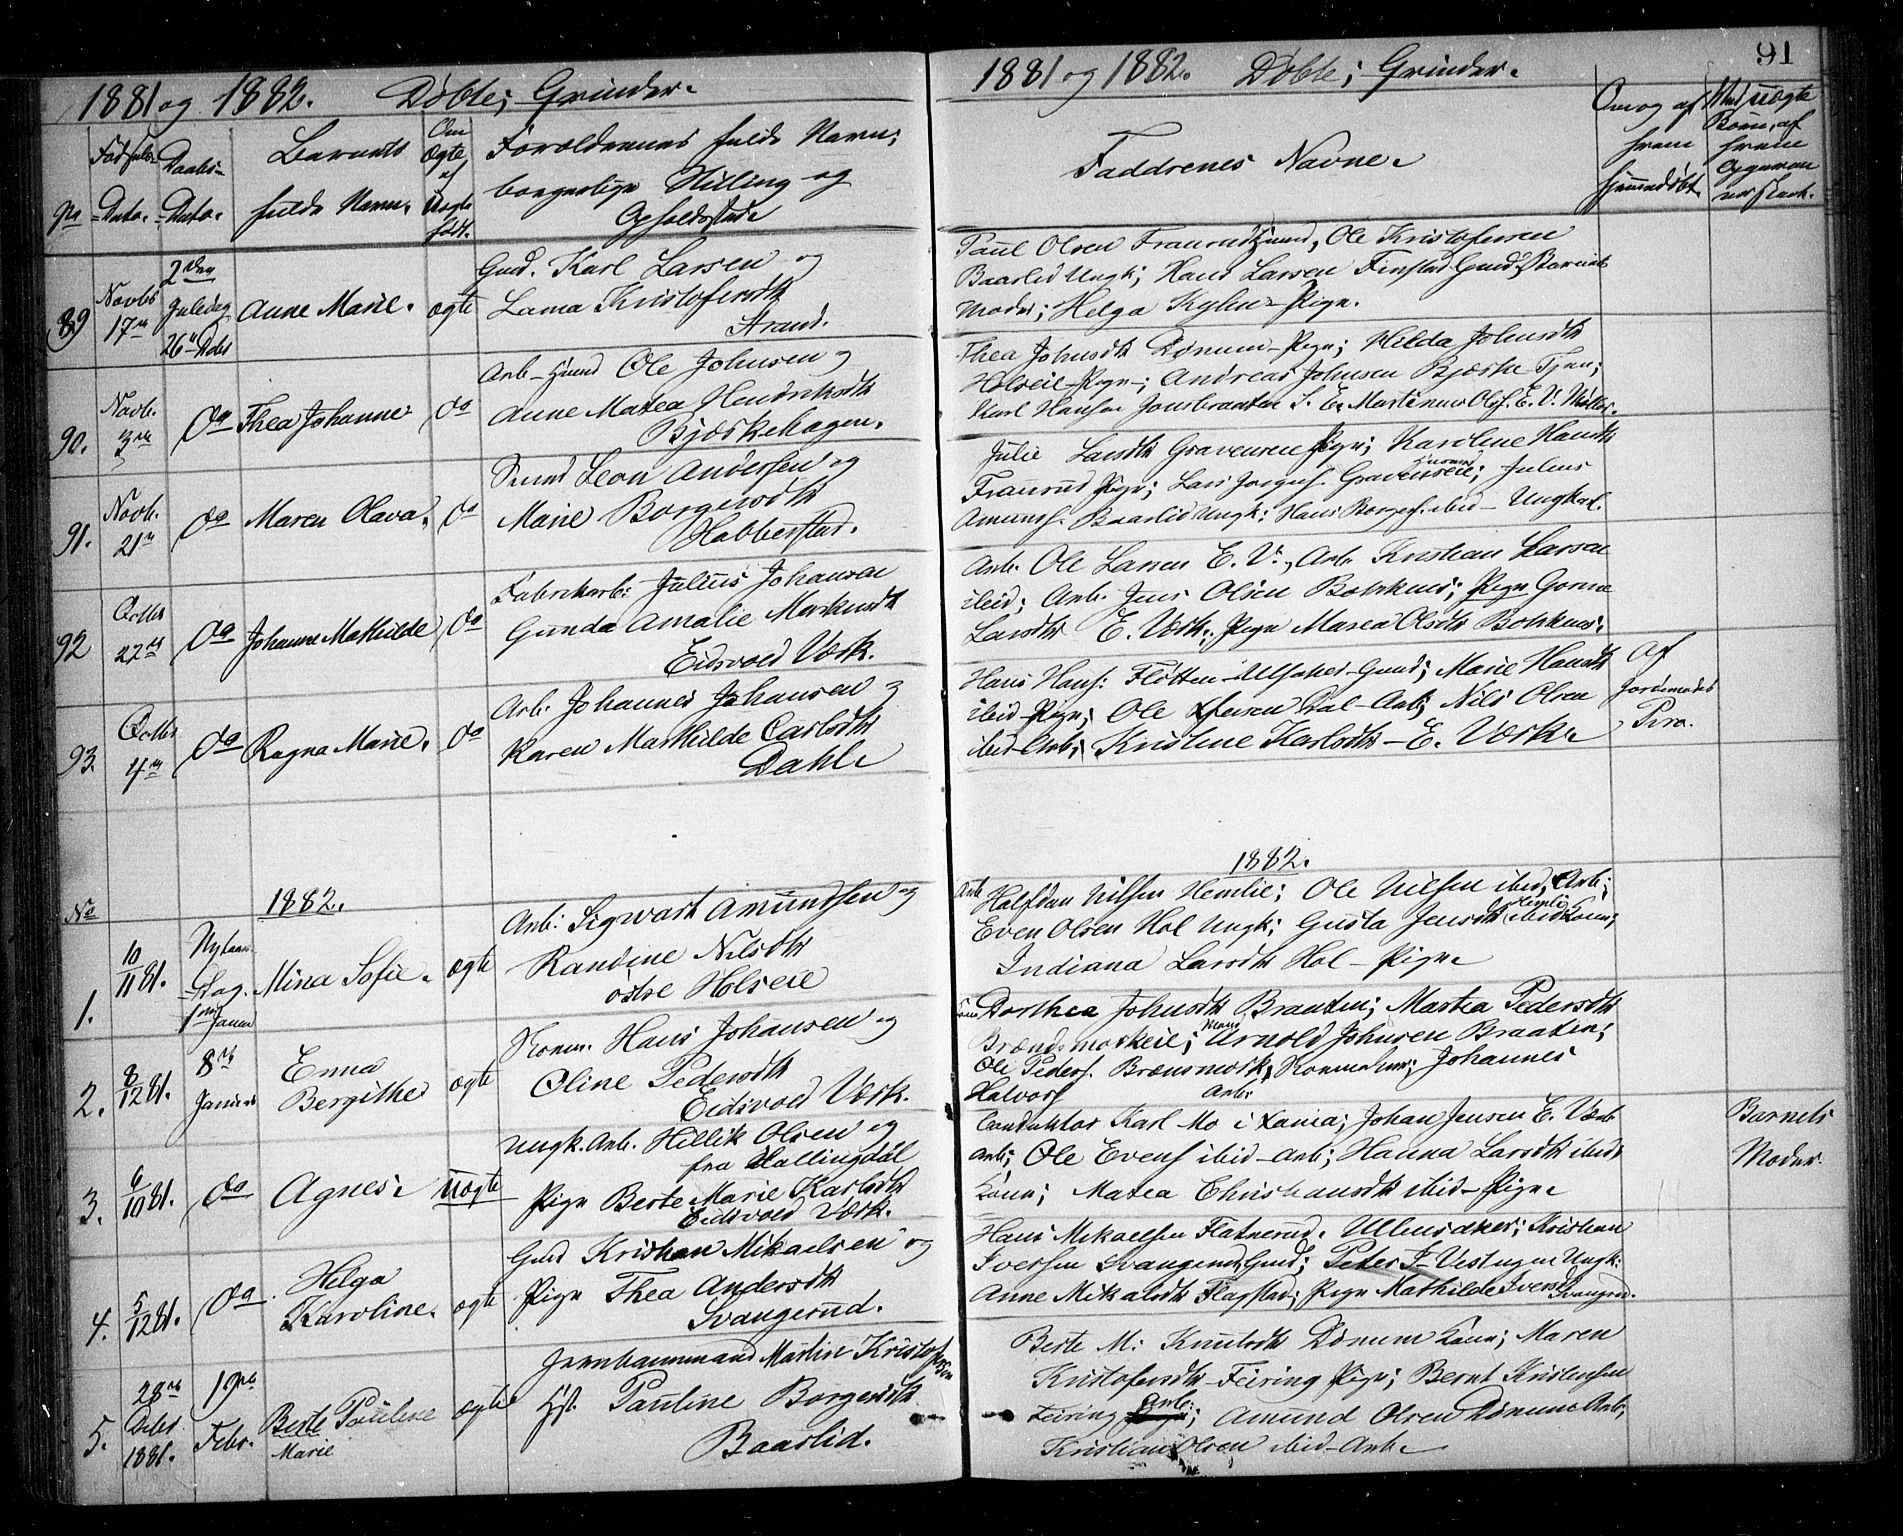 1881 og 1882. Døbte; Grinder.
Fødsels-
Daabs-
Barnets
Om
Ægte
el
Forældrenes fulde Navn,
No
-Dato.
-Dato.
fulde Navn.
Uægte
født.
borgerlige Stilling og
Opholdssted.
89
Novbr
17de
2den
Juledag
26de Debr
Anne Marie.
ægte
Gmd. Karl Larsen og
Lama Kristofersdtr
Strand.
90.
Novb.
3de
Do
Thea Johanne
Do
Arb-Hmd Ole Johnsen og
Anne Matea Hendriksdtr
Bjørkehagen.
91.
Novb.
21de
Do
Maren Olava.
Do
Leon Andersen og
Marie Borgersdtr
Habberstad.
92
Octbr
27de
Do
Johanne Mathilde
Do
Fabrikarb: Julius Johansen
Gunda Amalie
Eidsvold Værk.
93.
Octbr
4de
Do
Ragna Marie.
Do
Arb. Johannes Johansen og
Karen Mathilde Carlsdtr
Dahl.
No
1882.
1.
10/11 81.
Nytaars-
Dag.
1ste Januar
Mina Sofie.
ægte
Arb: Sigwart Amundsen og
Randine Nilsdtr
østre Holseie
2.
8/12 81.
8de
Januar
Emma
Bergithe
ægte
Hans Johansen og
Oline Pedersdtr
Eidsvold Værk.
3.
6/10 81.
Do
Agnes.
uægte
Ungk. Arb. Hellik Olsen og
fra Hallingdal
Pige Berte Marie Karlsdtr
Eidsvold Værk.
4.
5/12 81.
Do
Helga
Karoline.
ægte
Gmd Kristian Mikaelsen og
Pige Thea Andersdtr
Svangerud.
5.
28de
Debr
1881.
19de
Febr.
Berte Pauline
Marie
ægte
Jernbanemand Martin Kristoffersen
Hst. Pauline Borgersdtr
Baarlid.
91
1881 og 1882. Døbte; Grinder.
Faddrenes Navne.
Om og af
hvem
hjemmedøbt.
Ved uægte
Børn, af
hvem
Opgaven
er skeet.
Paul Olsen Fraurud, Ole Kristofersen
Baarlid Ungk; Hans Larsen Finstad Gmd; Barnets
Moder; Helga Pige.
Thea Johnsdtr Dønum-Pige; Hilda Johnsdtr
Holseie-Pige; Andreas Johnsen Bjørke Tjen;
Karl Hansen Jonsbraaten S. E. Martinus Olsf. E. V. Møller.
Julie Larsdtr Gravenseie Pige; Karoline Hansdtr
Fraurud Pige; Lars Jorgenf. Gravenseie; Julius
Amunsf. Baarlid Ungk; Hans Borgerf. ibid-Ungkarl.
Arb. Ole Larsen E. V., Arb. Kristian Larsen
ibid; Arb. Jens Olsen; Pige Gorine
Larsdtr E. Værk; Pige Marea Olsdtr
Hans Hansf. Fløtten-Ulsaker-Gmd; Marie Hansdtr
ibid-Pige; Ole Dal-Arb; Nils Olsen
ibid-Arb; Kristine Karlsdtr-E. Værk.
Af
Jordemoder
1882.
Arb Halfdan Nilsen Hemlie; Ole Nilsen ibid; Arb;
Even Olsen Hol Ungk; Gusta Jensdtr ibid Kone;
Indiana Larsdtr Hol-Pige.
Kone Dorthea Johnsdtr Braaten; Martea Pedersdtr
Arnold Johnsen Braaten;
Ole Pedersf. Johannes
Halvorsf Arb.
Conduktør Karl Mo i Xania; Johan Jensen E. Værk
Arb; Ole Evensf ibid-Arb; Hanna Larsdtr ibid
Kone; Matea Christiansdtr ibid-Pige.
Barnets
Moder.
Hans Mikaelsen Flatnerud. Ullensaker; Kristian
Iversen Svangerud Gmd; Peter Vestengen Ungk:
Anne Mikalsdtr Flagstad; Pige Mathilde Iversd Svangerud.
Berte M: Knutsdtr Dønum Kone; Maren
Kristofersdtr Feiring Pige; Bernt Kristensen
Feiring Arb: Amund Olsen Dønum Arb;
Kristian Olsen ibid-Arb.